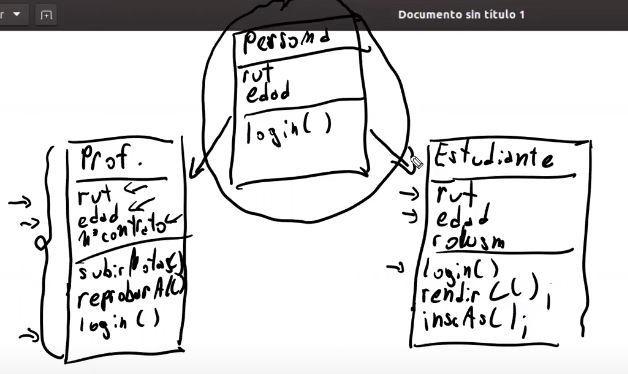 Documento sin título 1
Persona
rut
edad
login()
Prof.
rut
edad
n° contrato
subirNotas()
reprobarAl()
login()
Estudiante
rut
edad
rolusm
login()
rendirC();
inscAs();